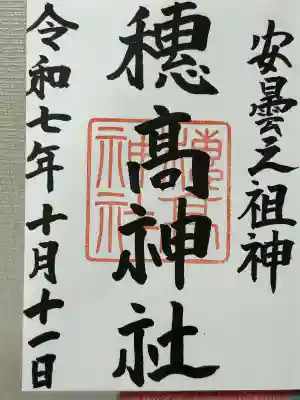 安曇之祖神
穂髙神社
令和七年十月十一日
穂高神社